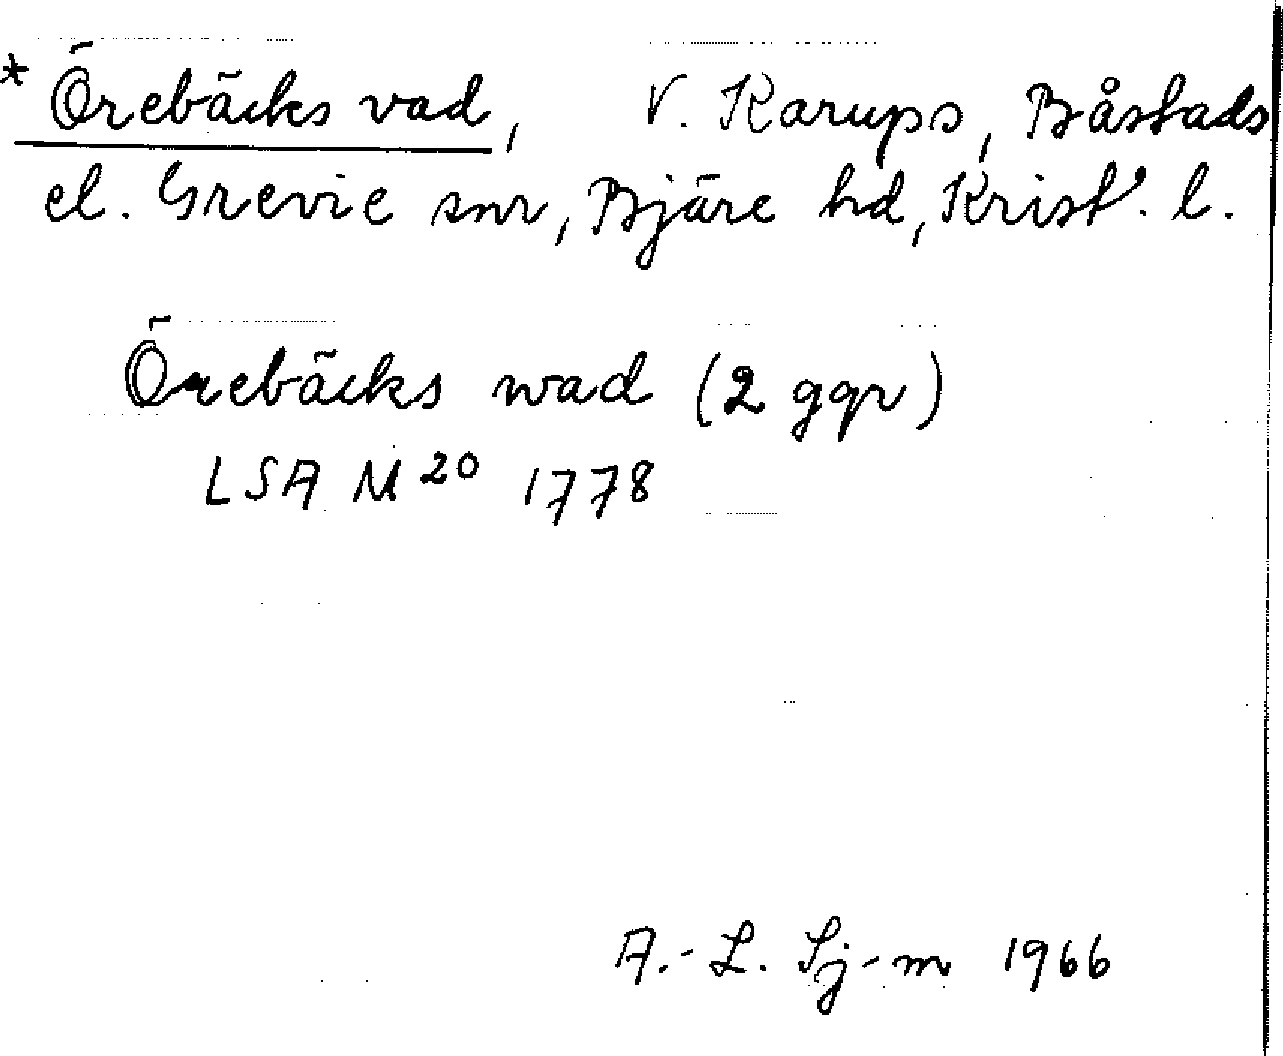 * Örebäcks vad, V. Karups, Båstads
el. Grevie snr, Bjäre hd, Krist. l.
Örebäcks wad (2 ggr)
LSA M 20 1778
A.-L. Sj-m 1966